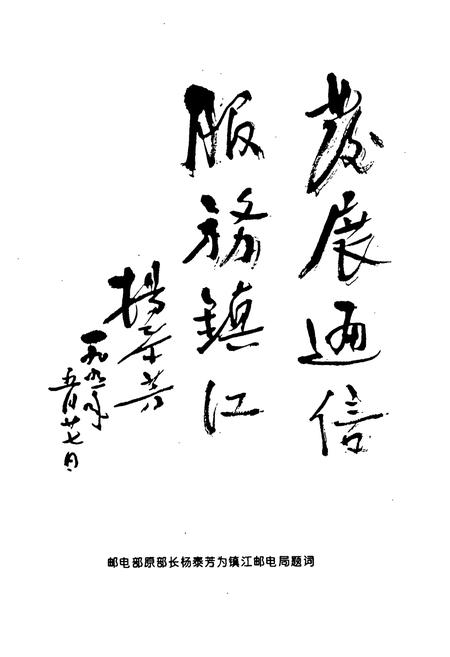 發展通信
服務鎮江
楊泰芳
一九九年
五月廿七日
邮电部原部长杨泰芳为镇江邮电局题词